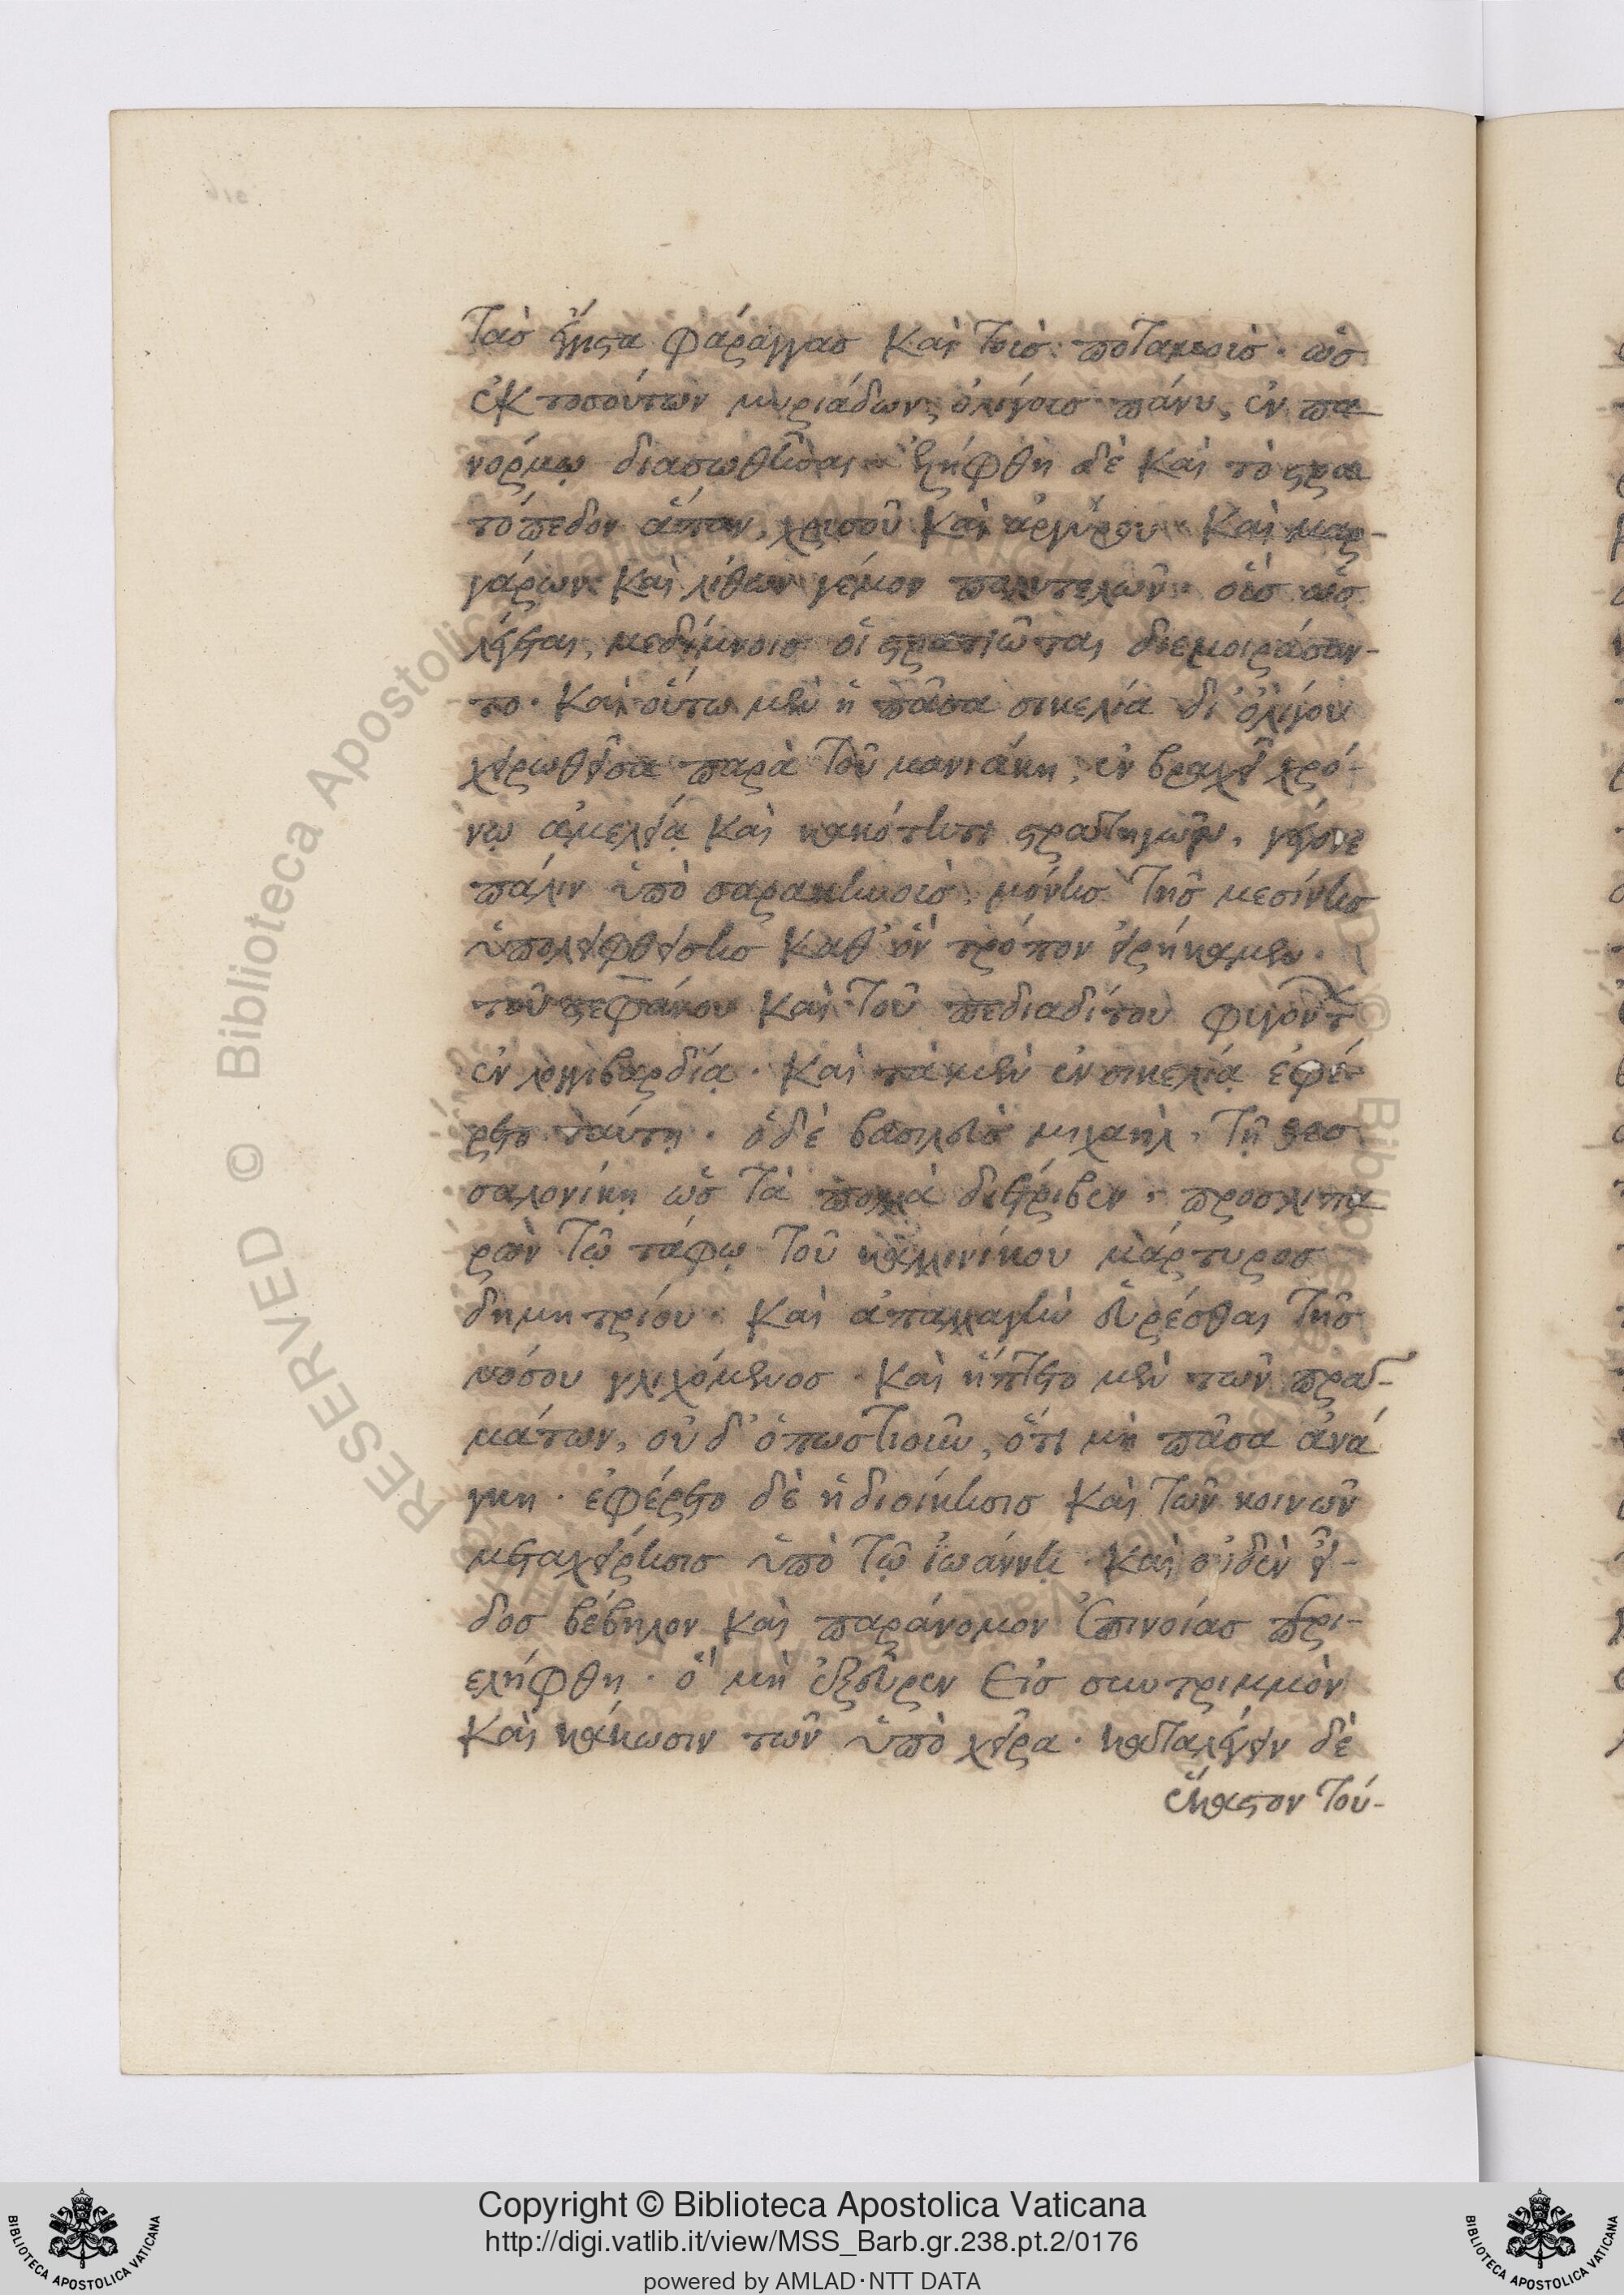 τὰς ἔγγιστα φάραγγας καὶ τοὺς ποταμούς. ὡς
ἐκ τοσούτων μυριάδων, ὀλίγους πάνυ, ἐν πα
νόρμῳ διασωθῆναι. ἐλήφθη δὲ καὶ τὸ στρα
τόπεδον ἅπαν, χρυσοῦ καὶ ἀργύρου καὶ μαρ-
γάρων καὶ λίθων γέμον πολυτελῶν. οὓς ὡς
λέγεται, μεδίμνοις οἱ στρατιῶται διεμοιράσαν-
το. καὶ οὕτω μὲν ἡ πᾶσα σικελία δι' ὀλίγου
χειρωθεῖσα παρὰ τοῦ μανιάκη, ἐν βραχεῖ χρό-
νῳ ἀμελείᾳ καὶ κακότητι στρατηγῶν, γέγονε
πάλιν ὑπὸ σαρακηνοὺς, μόνης τῆς μεσίνης
ὑπολειφθείσης καθ' ὃν τρόπον εἰρήκαμεν.
τοῦ στεφάνου καὶ τοῦ πεδιαδίτου φυγόντων
ἐν λογγιβαρδίᾳ. καὶ τὰ μὲν ἐν σικελίᾳ ἐφέ-
ρετο ταύτῃ. ὁ δὲ βασιλεὺς μιχαὴλ, τῇ θεσ
σαλονίκῃ ὡς τὰ πολλὰ διέτριβεν, προσλιπα
ρῶν τῷ τάφῳ τοῦ καλλινίκου μάρτυρος
δημητρίου. καὶ ἀπαλλαγὴν εὑρέσθαι τῆς
νόσου γλιχόμενος. καὶ ἥπτετο μὲν τῶν πραγ-
μάτων, οὐδ' ὁπωστιοῦν, ὅτι μὴ πᾶσα ἀνά
γκη. ἐφέρετο δὲ ἡ διοίκησις καὶ τῶν κοινῶν
μεταχείρησις ὑπὸ τῷ ἰωάννῃ. καὶ οὐδὲν εἶ-
δος βέβηλον καὶ παράνομον ἐπινοίας περι-
ελήφθη. ὃ μὴ ἐξεῦρεν εἰς συντριμμὸν
καὶ κάκωσιν τῶν ὑπὸ χεῖρα. καταλέγειν δὲ
ἕκαστον τού-
Copyright © Biblioteca Apostolica Vaticana
http://digi.vatlib.it/view/MSS_Barb.gr.238.pt.2/0176
powered by AMLAD·NTT DATA